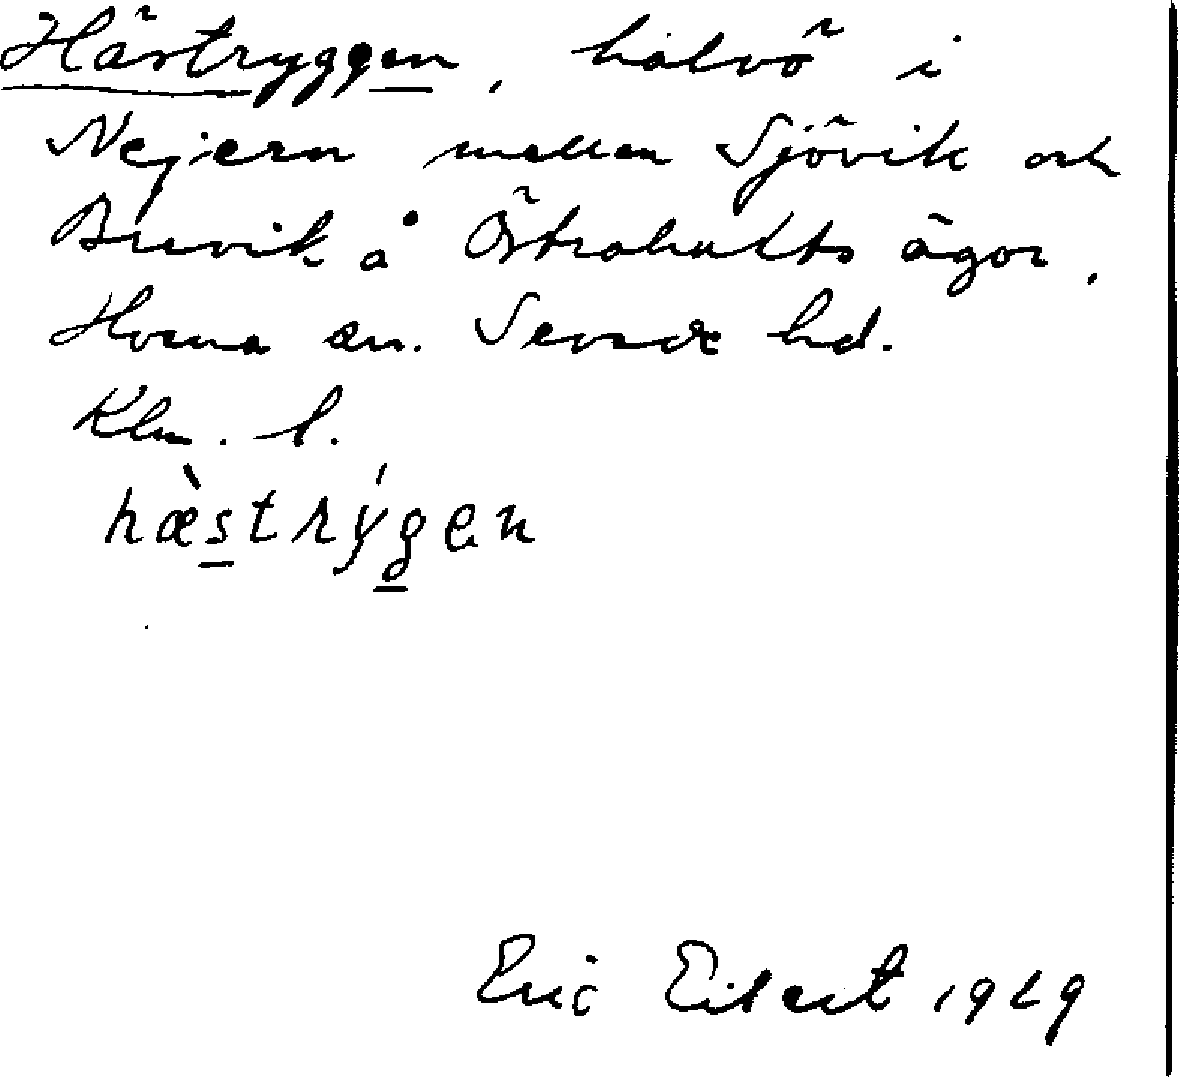 Hästryggen, halvö i
Nejern mellan Sjövik och
Buvik å Östrahults ägor.
Horna sn. Sevede hd.
Klm. l.
hæ̀strýgen
Eric Eilert 1929